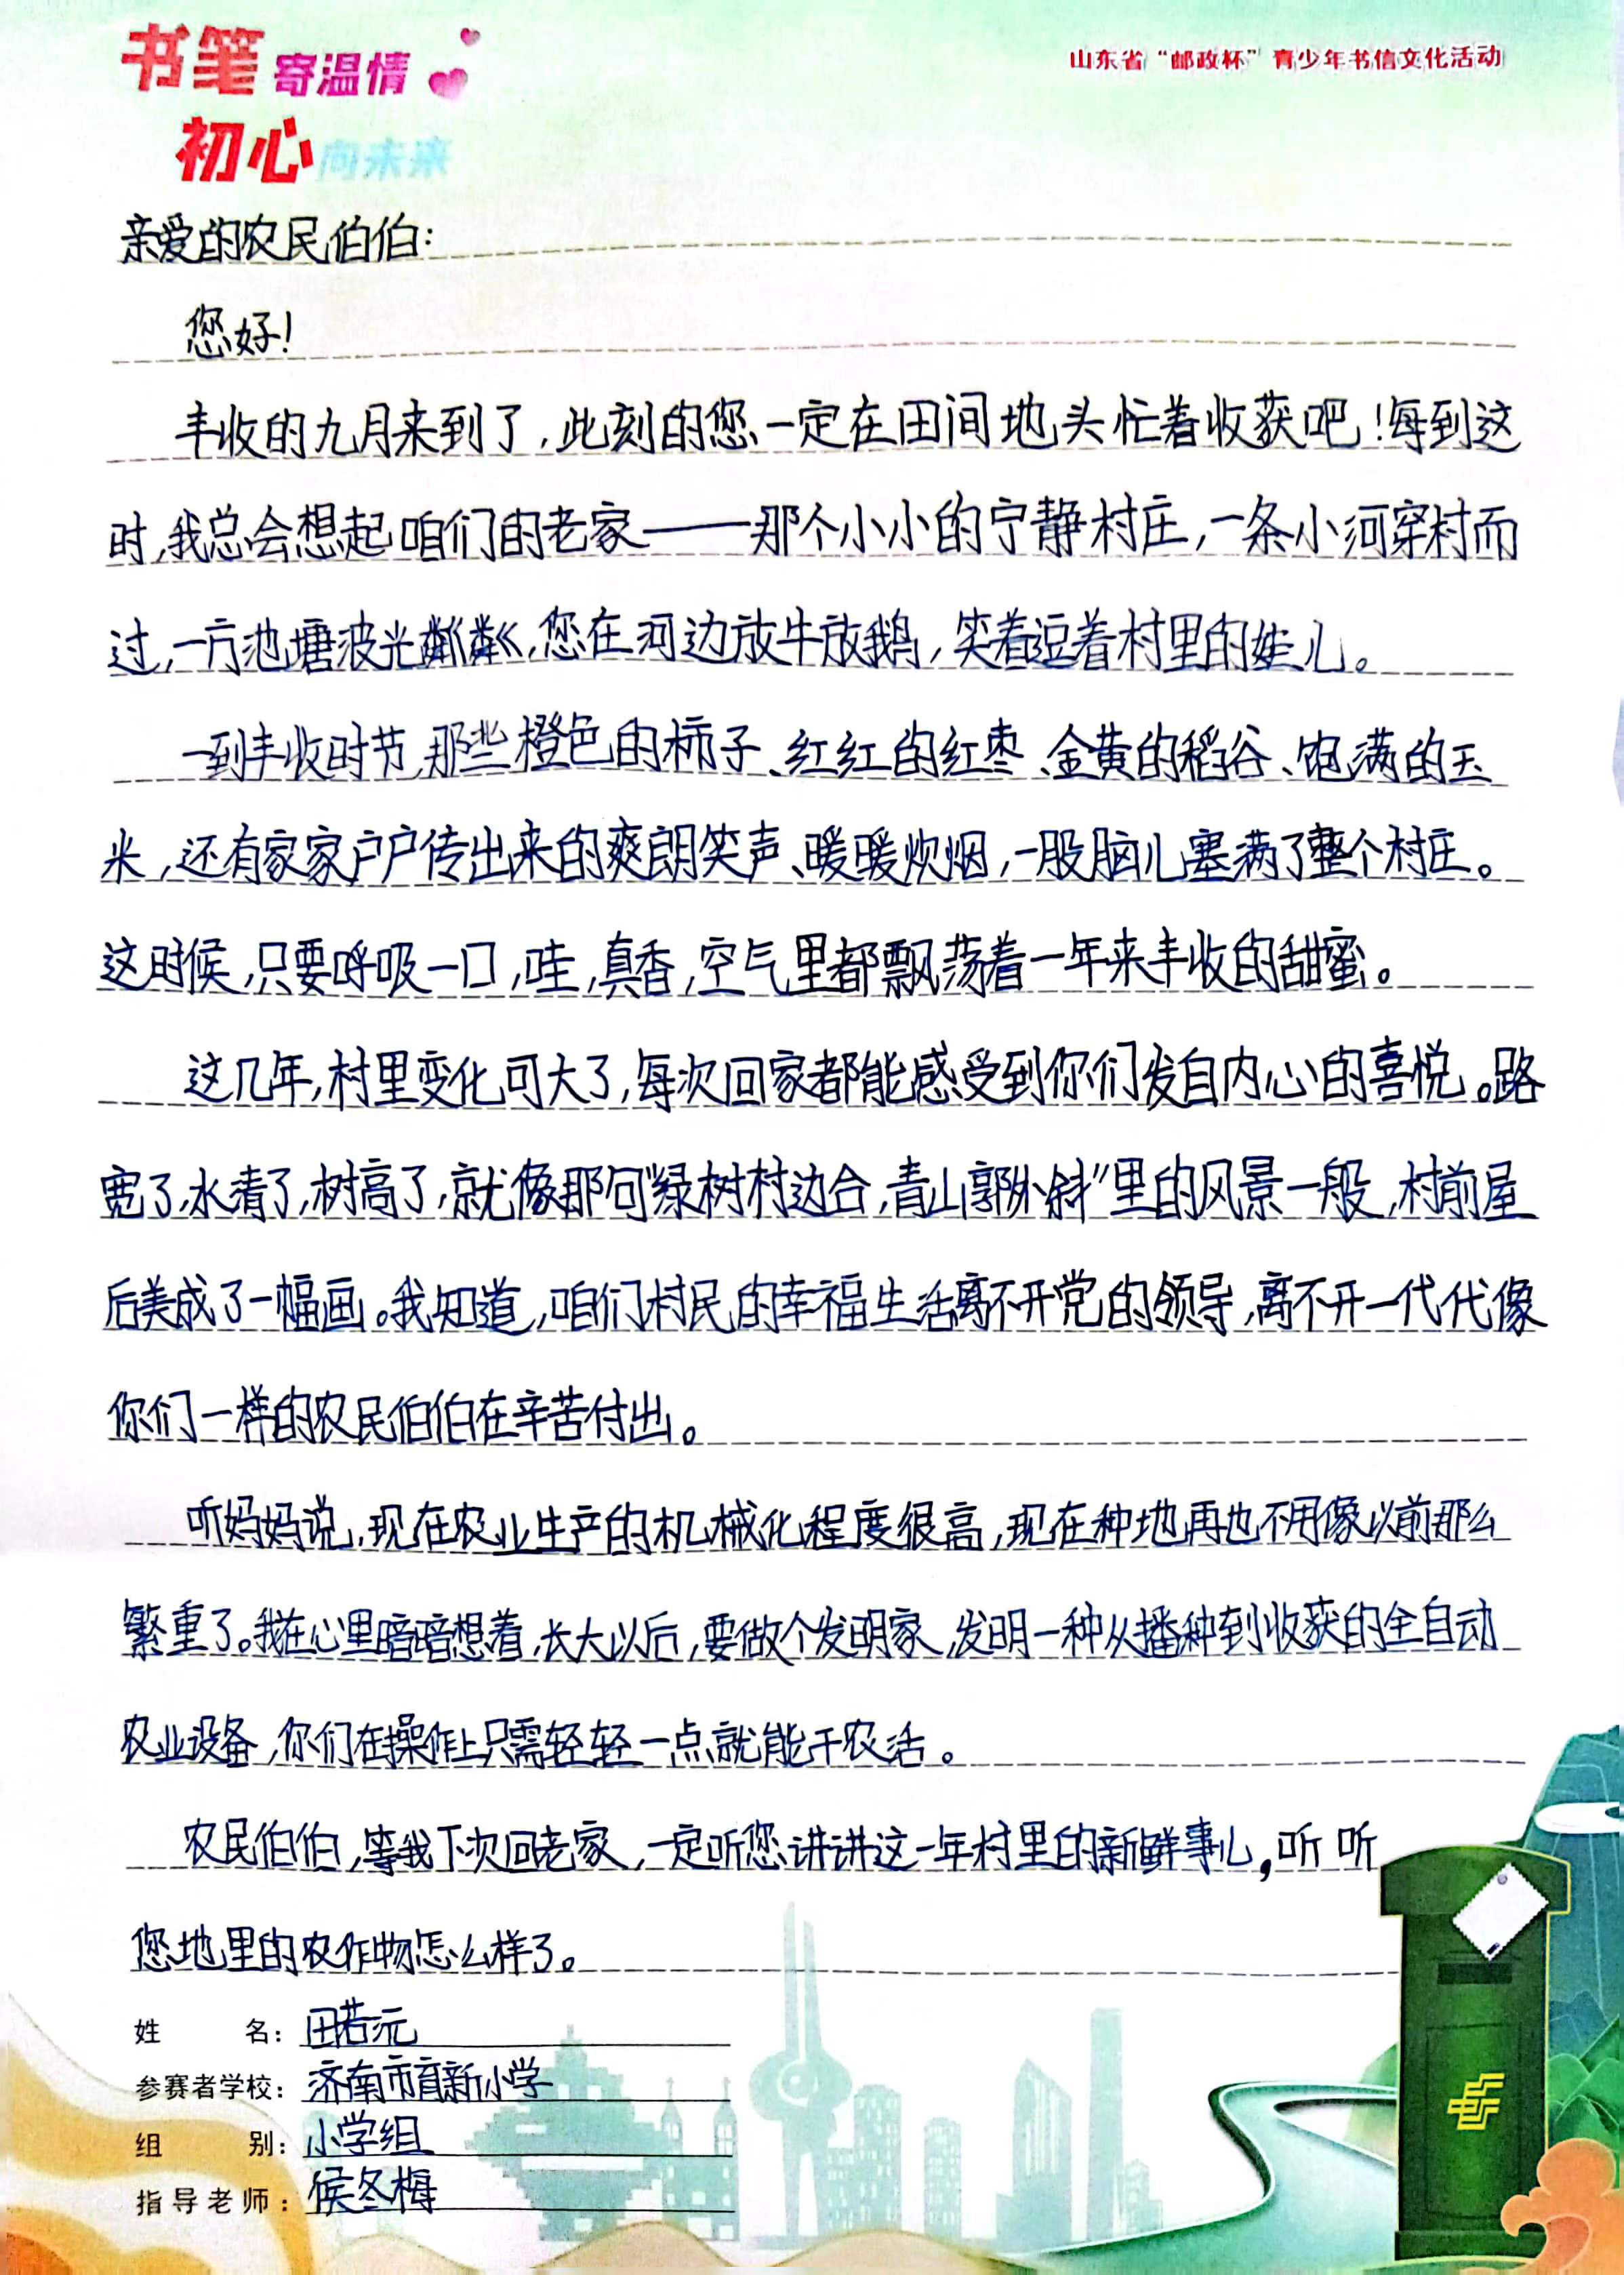 书笔寄温情
初心向未来
山东省“邮政杯”青少年书信文化活动
亲爱的农民伯伯：
您好！
丰收的九月来到了，此刻的您一定在田间地头忙着收获吧！每到这
时，我总会想起咱们的老家——那个小小的宁静村庄，一条小河穿村而
过，一方池塘波光粼粼，您在河边放牛放鹅，笑着逗着村里的娃儿。
一到丰收时节，那些橙色的柿子、红红的红枣、金黄的稻谷、饱满的玉
米，还有家家户户传出来的爽朗笑声、暖暖炊烟，一股脑儿塞满了整个村庄。
这时候，只要呼吸一口，哇，真香，空气里都飘荡着一年来丰收的甜蜜。
这几年，村里变化可大了，每次回家都能感受到你们发自内心的喜悦。路
宽了，水清了，树高了，就像那句“绿树村边合，青山郭外斜”里的风景一般，村前屋
后美成了一幅画。我知道，咱们村民的幸福生活离不开党的领导，离不开一代代像
你们一样的农民伯伯在辛苦付出。
听妈妈说，现在农业生产的机械化程度很高，现在种地再也不用像以前那么
繁重了。我在心里暗暗想着，长大以后，要做个发明家，发明一种从播种到收获的全自动
农业设备，你们在操作上只需轻轻一点就能干农活。
农民伯伯，等我下次回老家，一定听您讲讲这一年村里的新鲜事儿，听听
您地里的农作物怎么样了。
姓名：田若沅
参赛者学校：济南市育新小学
组别：小学组
指导老师：侯冬梅